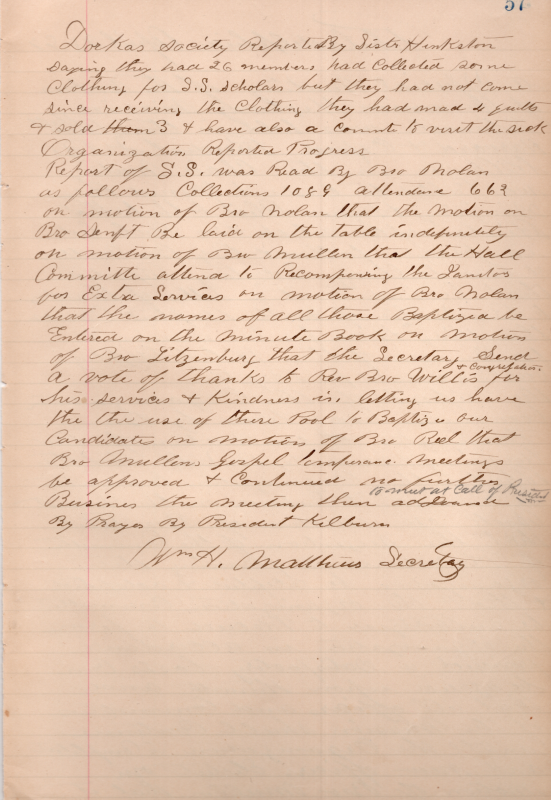 57
Dorkas Society Reported By Sistr Hinkston
saying they had 26 members had Collected some
Clothing for S.S. Scholars but they had not come
since receiving the Clothing they had mad 4 quilts
& sold them 3 & have also a committe to visit the sick
Organization Reported Progress
Report of S.S. was Read By Bro Nolan
as follows Collections 1089 attendane 662
on motion of Bro Nolan that the motion on
Bro Senft Be laid on the table indefinitely
on motion of Bro Mullen that the Hall
Committe attend to Recompensing the Janitor
for Extra Services on motion of Bro Nolan
that the names of all those Baptized be
Entered on the Minute Book on motion
of Bro Litzenburg that the Secretary Send
a vote of thanks to Rev Bro Willis & Congregation for
his services & Kindness in letting us have
the the use of there Pool to Baptize our
Candidates on motion of Bro Reel that
Bro Mullens Gospel temperance meetings
be approved & Continued no further
Busines the meeting then to meet at Call of President
By Prayer By President Kilburn
Wm H. Matthews Secretay